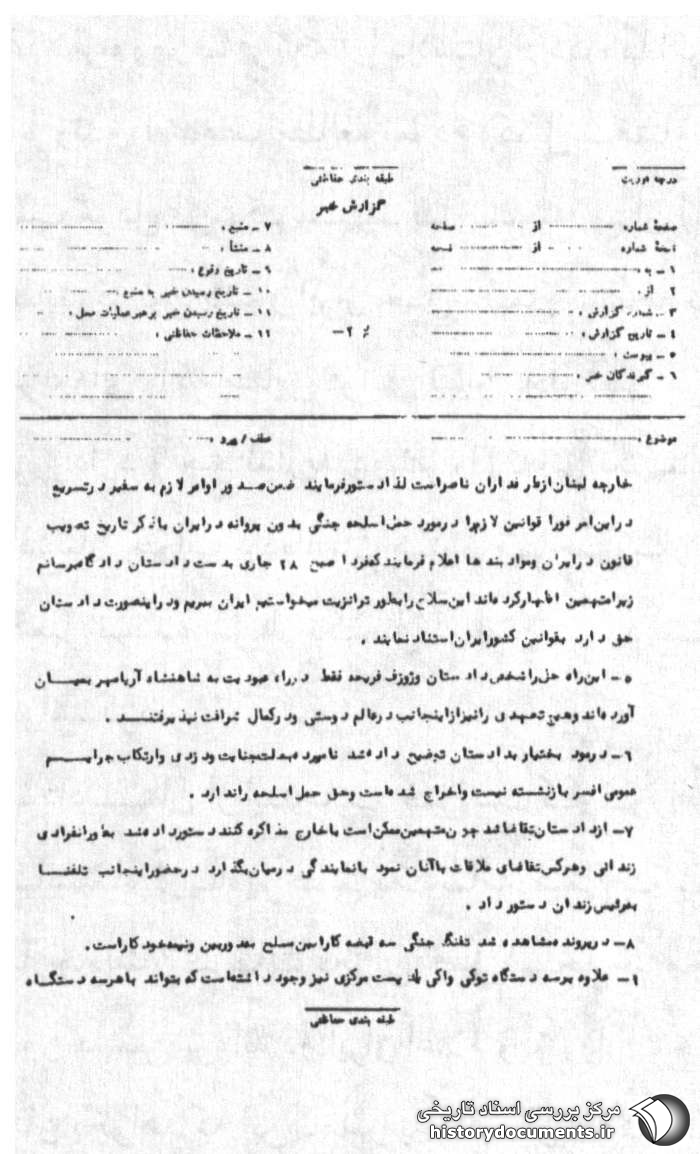 درجه فوریت
طبقه بندی حفاظتی
گزارش خبر
صفحهٔ شماره از صفحه
نسخهٔ شماره از نسخه
۱ ـ به :
۲ ـ از :
۳ ـ شماره گزارش :
۴ ـ تاریخ گزارش :
۵ ـ پیوست :
۶ ـ گیرندگان خبر :
۷ ـ منبع :
۸ ـ منشأ :
۹ ـ تاریخ وقوع :
۱۰ ـ تاریخ رسیدن خبر به منبع :
۱۱ ـ تاریخ رسیدن خبر به رهبر عملیات محل :
۱۲ ـ ملاحظات حفاظتی :
٪ ۲ــ
موضوع :
عطف / پیرو :
خارجه لبنان از طرفداران ناصر است لذا دستور فرمایند ضمن صدور اوامر لازم به سفیر در تسریع
در این امر فورا قوانین لازم را در مورد حمل اسلحه جنگی بدون پروانه در ایران با ذکر تاریخ تصویب
قانون در ایران و مواد بندها اعلام فرمایند که فردا صبح ۲۸ جاری بدست دادستان دادگاه برسانم
زیرا متهمین اظهار کرده‌اند این سلاح را بطور ترانزیت میخواستیم ایران ببریم و در اینصورت دادستان
حق دارد بقوانین کشور ایران استناد نماید .
۵ــ این راه حل را شخص دادستان و ژوزف فریحه فقط در راه عبودیت به شاهنشاه آریامهر بمیـــان
آورده‌اند و هیچ تعهدی را نیز از اینجانب در عالم دوستی و در کمال شرافت نپذیرفتنـــد .
۶ــ در مورد بختیار به دادستان توضیح داده شد نامبرده بعلت جنایت و دزدی و ارتکاب جرایـــم
عمومی افسر بازنشسته نیست و اخراج شده است و حق حمل اسلحه را ندارد .
۷ــ از دادستان تقاضا شد چون متهمین ممکن است با خارج مذاکره کنند دستور داده شد بطور انفرادی
زندانی و هر کس تقاضای ملاقات با آنان نمود با نمایندگی در میان بگذارد در حضور اینجانب تلفنــا
به رئیس زندان دستور داد .
۸ــ در پرونده مشاهده شد تفنگ جنگی سه قبضه کارابین مسلح بعد وربین و نیمه خود کار است .
۹ــ علاوه بر سه دستگاه توکی واکی یک پست مرکزی نیز وجود داشته است که بتواند با هر سه دستگـاه
طبقه بندی حفاظتی
مرکز بررسی اسناد تاریخی
historydocuments.ir